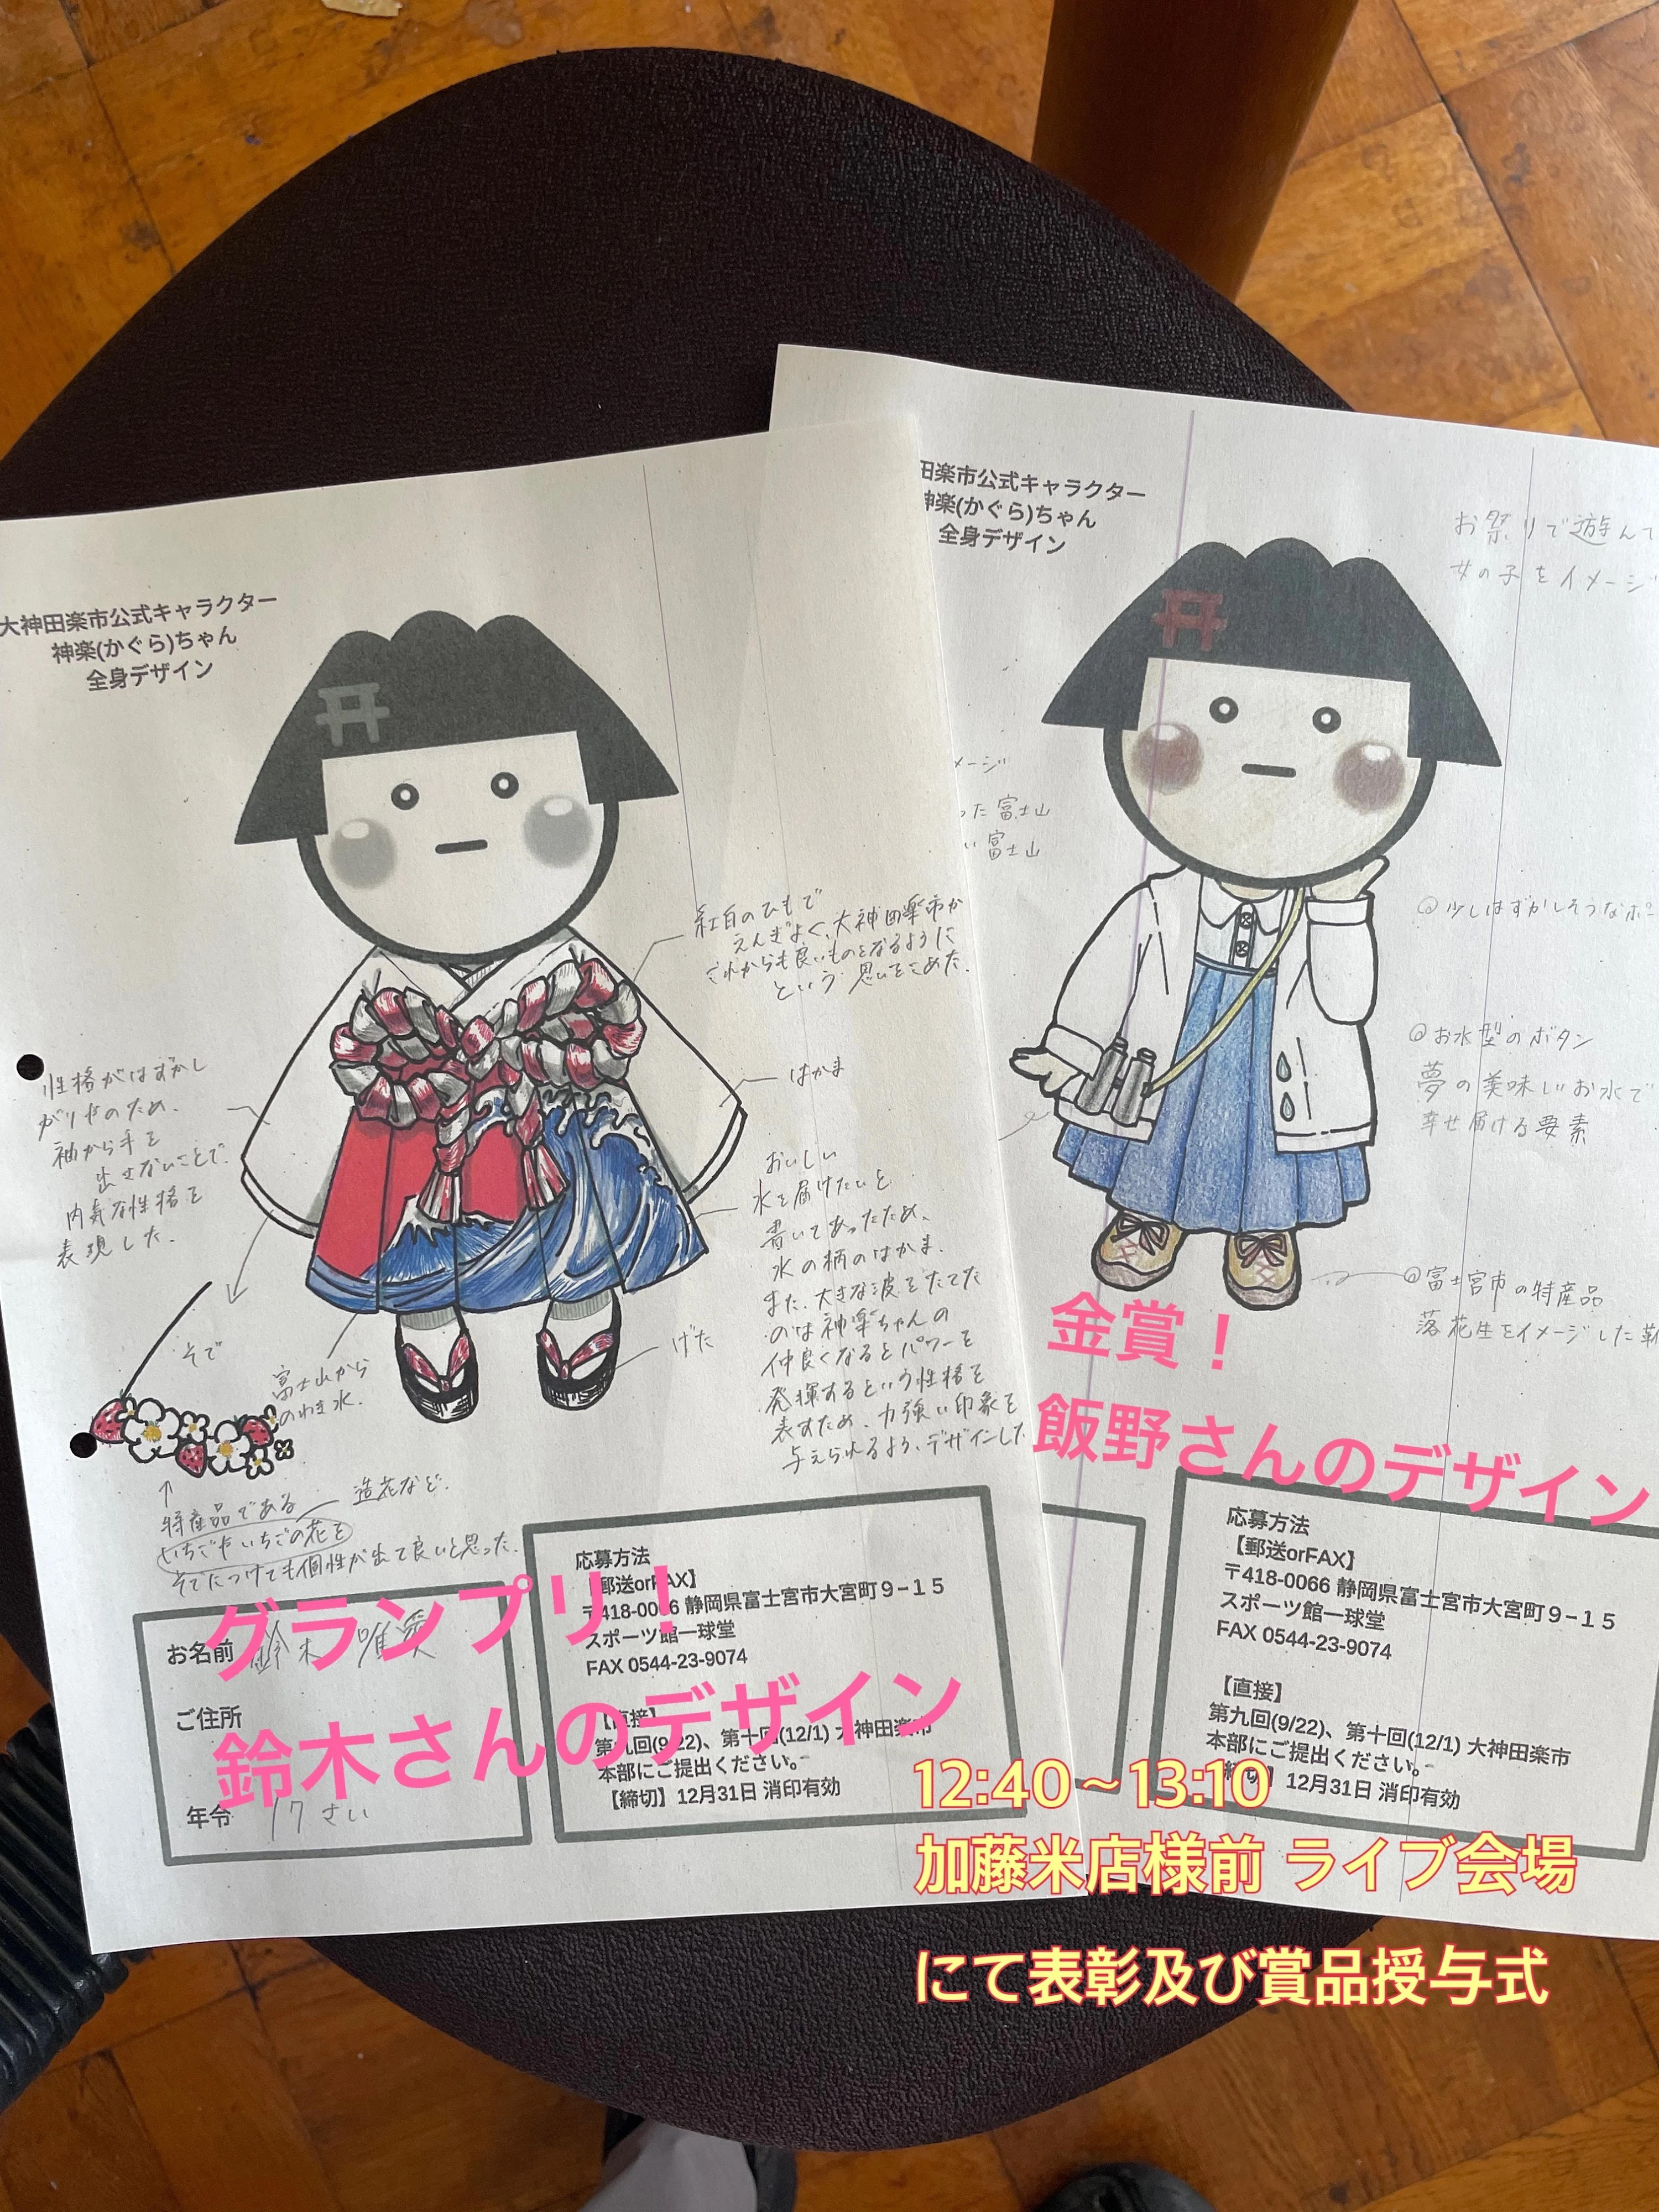 大神田楽市公式キャラクター
神楽(かぐら)ちゃん
全身デザイン
紅白のひもで
えんぎよく、大神田楽市が
これからも良いものとなるように
という思いをこめた。
はかま
性格がはずかし
がりやのため、
袖から手を
出さないことで、
内気な性格を
表現した。
おいしい
水を届けたいと
書いてあったため、
水の柄のはかま。
また、大きな波をたてた
のは神楽ちゃんの
仲良くなるとパワーを
発揮するという性格を
表すため、力強い印象を
与えられるよう、デザインした
げた
そで
富士山から
のわき水。
特産品である
造花など。
いちごやいちごの花を
そでにつけても個性が出て良いと思った。
お名前 鈴木 唯愛
ご住所
年令 17さい
応募方法
【郵送orFAX】
〒418-0066 静岡県富士宮市大宮町9−15
スポーツ館一球堂
FAX 0544-23-9074
【直接】
第九回(9/22)、第十回(12/1) 大神田楽市
本部にご提出ください。
【締切】12月31日 消印有効
グランプリ！
鈴木さんのデザイン
田楽市公式キャラクター
神楽(かぐら)ちゃん
全身デザイン
お祭りで遊んで
女の子をイメージ
メージ
った富士山
い富士山
少しはずかしそうなポー
お水型のボタン
夢の美味しいお水で
幸せ届ける要素
富士宮市の特産品
落花生をイメージした靴
金賞！
飯野さんのデザイン
応募方法
【郵送orFAX】
〒418-0066 静岡県富士宮市大宮町9−15
スポーツ館一球堂
FAX 0544-23-9074
【直接】
第九回(9/22)、第十回(12/1) 大神田楽市
本部にご提出ください。
【締切】12月31日 消印有効
12:40~13:10
加藤米店様前 ライブ会場
にて表彰及び賞品授与式